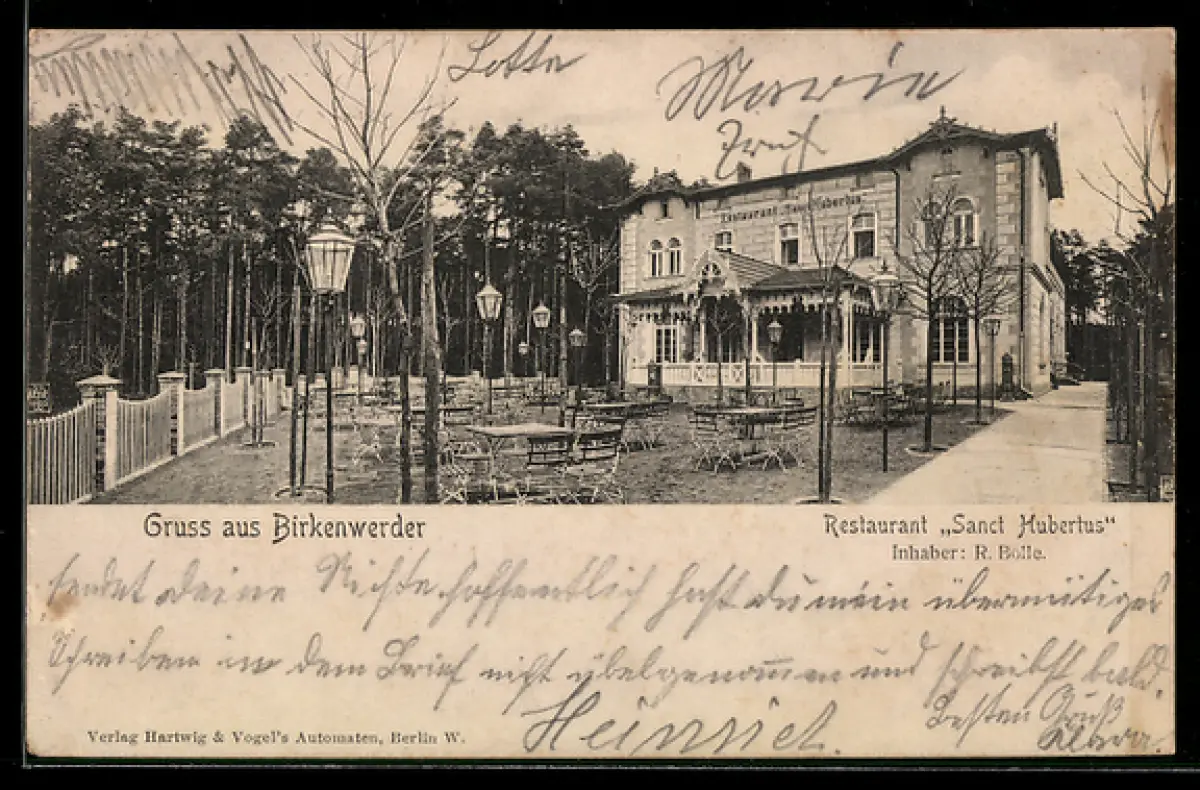 Lotte
Martin
Fritz
Restaurant "Sanct Hubertus"
Gruss aus Birkenwerder
Restaurant „Sanct Hubertus“
Inhaber: R. Bolle.
sendet deine Nichte hoffentlich hast du mein übermütiges
Schreiben in dem Brief nicht übelgenom̄en und schreibst bald.
Besten Gruß
Heinrich.
Klara.
Verlag Hartwig & Vogel's Automaten, Berlin W.